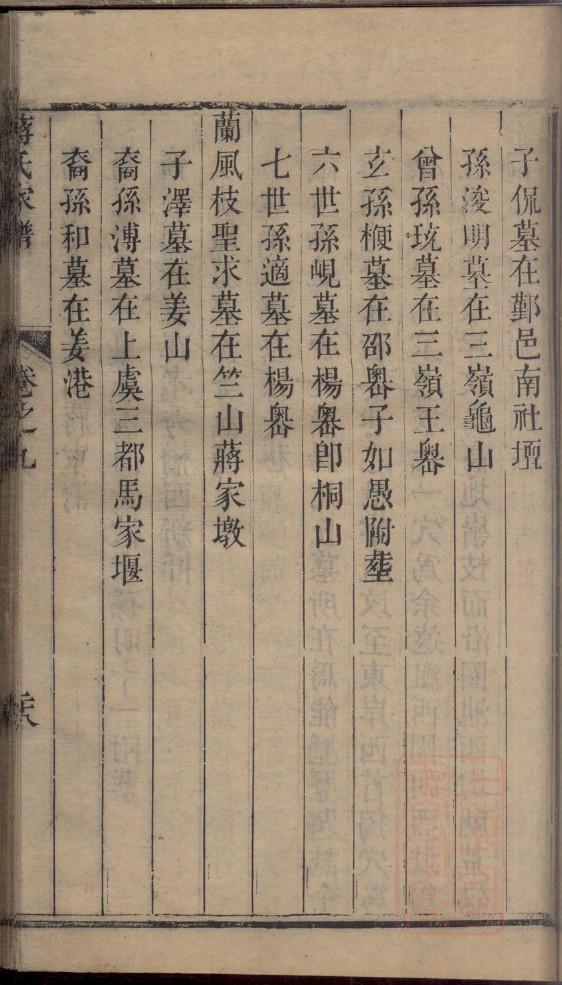 子侃墓在鄞邑南社壇
孫浚明墓在三嶺龜山
曾孫珫墓在三嶺王㠗
玄孫楩墓在邵㠗子如愚附塟
六世孫峴墓在楊㠗卽桐山
七世孫適墓在楊㠗
蘭風枝聖求墓在竺山蔣家墩
子澤墓在姜山
裔孫溥墓在上虞三都馬家堰
裔孫和墓在姜港
蔣氏家譜
卷之九